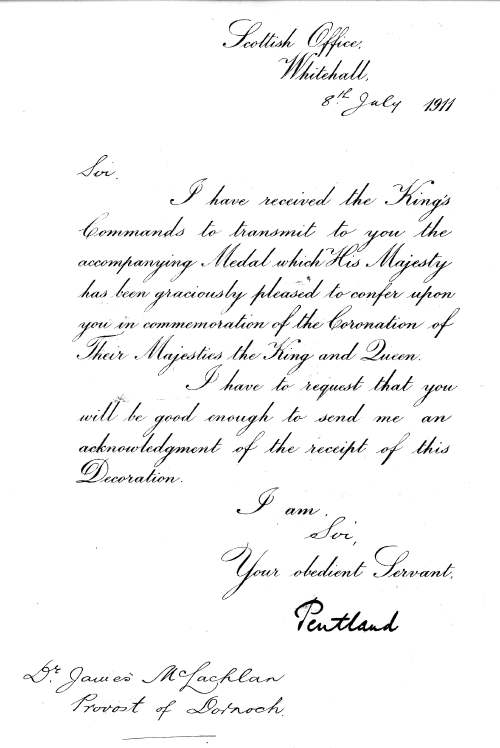 Scottish Office,
Whitehall,
8th July 1911
Sir.
I have received the King's
Commands to transmit to you the
accompanying Medal which His Majesty
has been graciously pleased to confer upon
you in commemoration of the Coronation of
Their Majesties the King and Queen.
I have to request that you
will be good enough to send me an
acknowledgment of the receipt of this
Decoration.
I am,
Sir,
Your obedient Servant,
Pentland
Dr James McLachlan
Provost of Dornoch.